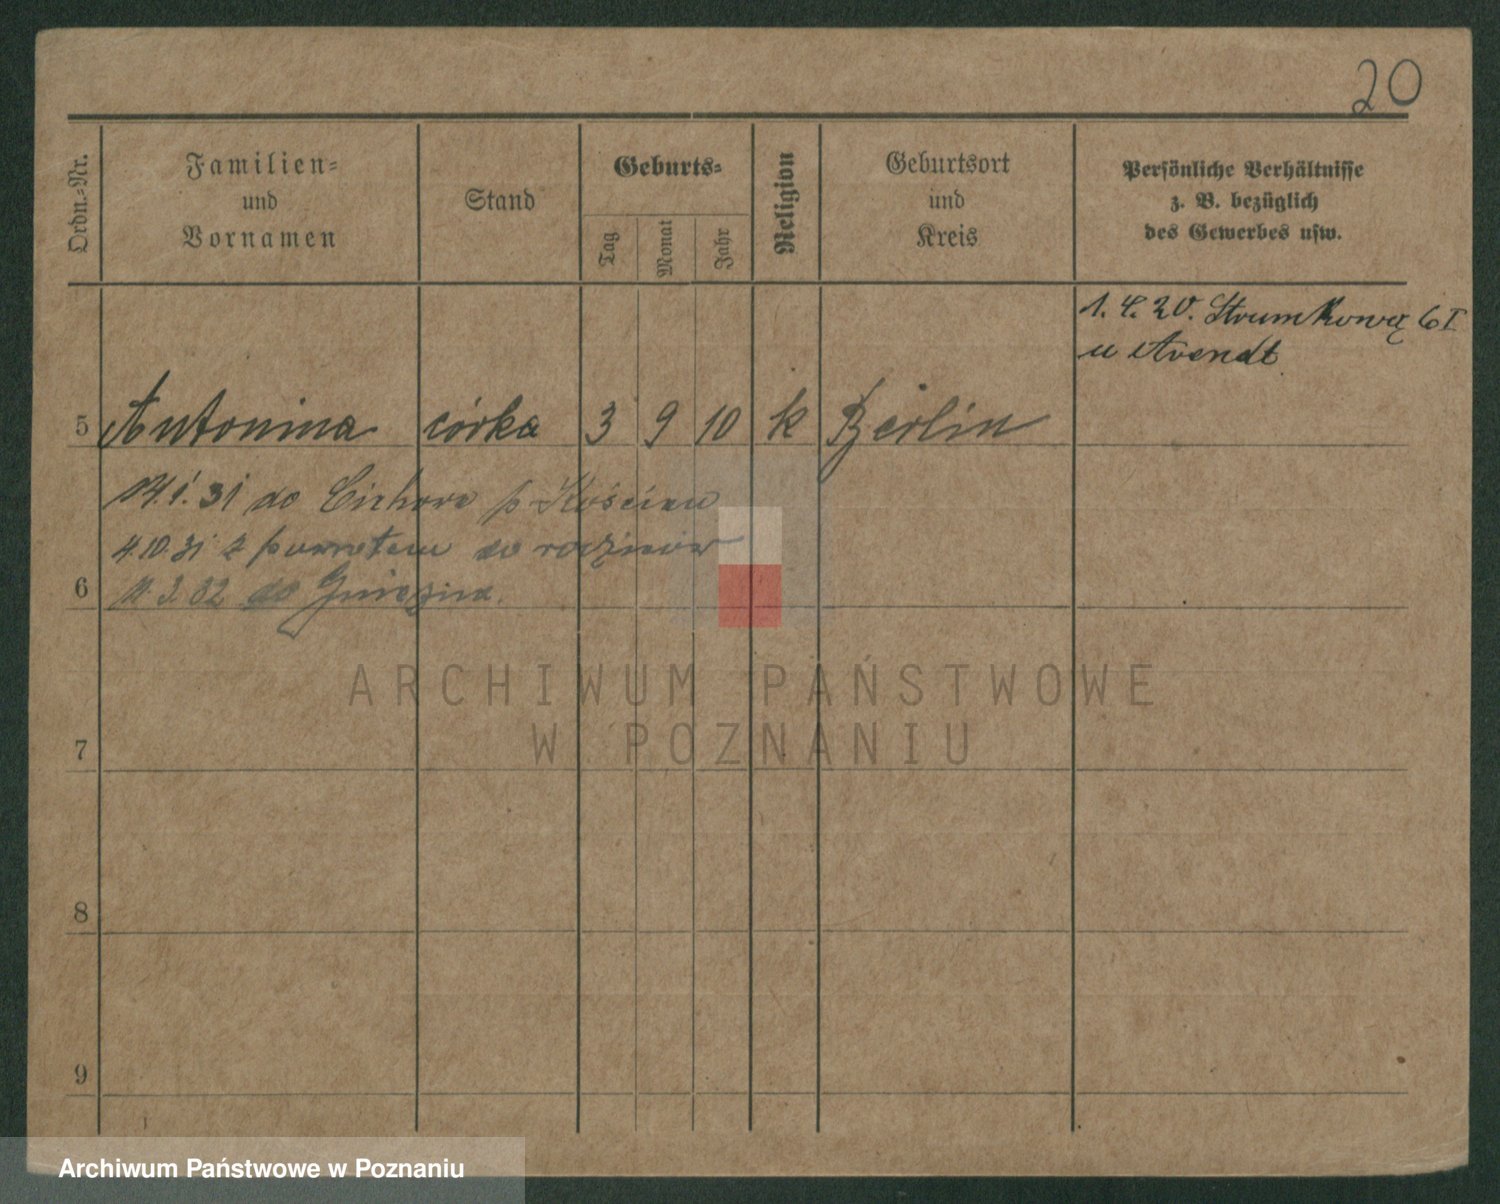 20
Ordn.-Nr.
Familien-
und
Vornamen
Stand
Geburts-
Tag
Monat
Jahr
Religion
Geburtsort
und
Kreis
Persönliche Verhältnisse
z. B. bezüglich
des Gewerbes usw.
1. 4. 20. Strumkową 6 I
u Arendt
5 Antonina córka 3 9 10 k Berlin
14.1.31 do Cichowa p Kościan
4.10.31 z powrotem do rodziców
6 11.3.32 do Gniezna.
7
8
9
ARCHIWUM PAŃSTWOWE
W POZNANIU
Archiwum Państwowe w Poznaniu